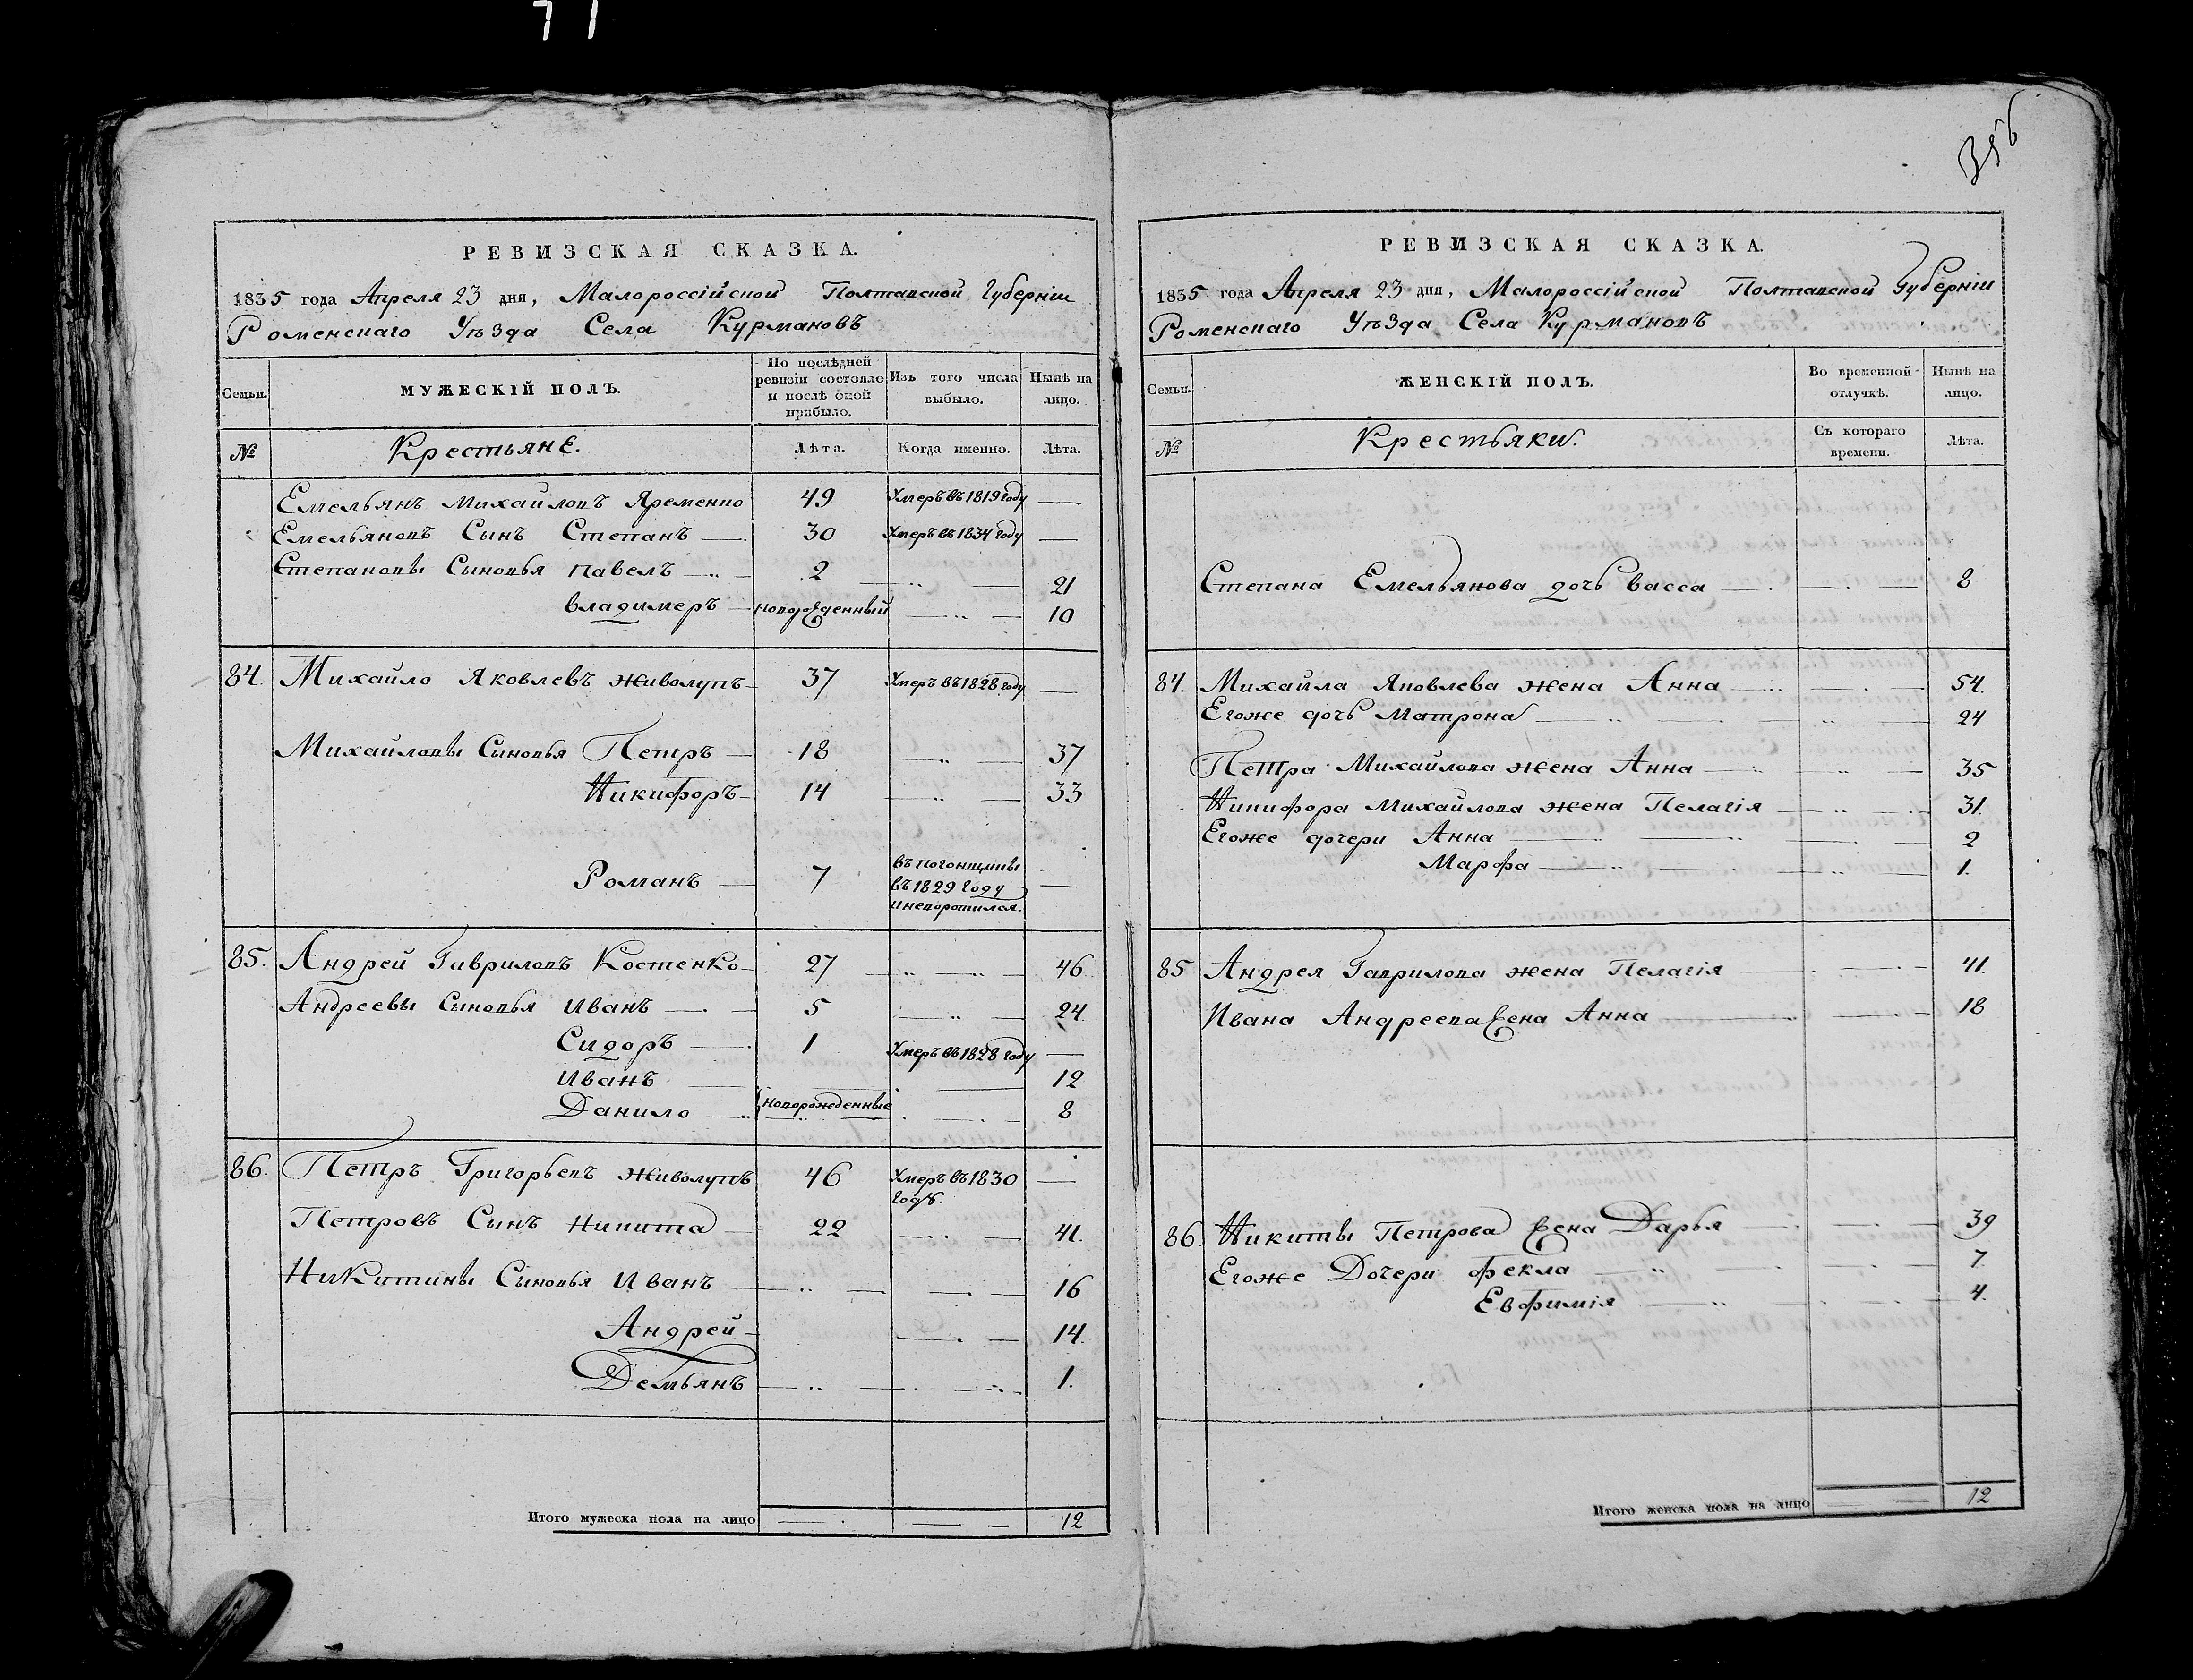 356
РЕВИЗСКАЯ СКАЗКА.
1835 года Апреля 23 дня, Малороссійской Полтавской Губерніи
Роменскаго Уѣзда Села Курмановъ
Семьи.
МУЖЕСКІЙ ПОЛЪ.
По послѣдней ревизіи состояло и послѣ оной прибыло.
Изъ того числа выбыло.
Нынѣ на лицо.
№ Крестьяне. Лѣта. Когда именно. Лѣта.
Емельянъ Михайловъ Яременко 49 Умеръ въ 1819 году —
Емельяновъ Сынъ Степанъ — 30 Умеръ въ 1834 году —
Степановы Сыновья Павелъ — 2 — 21
Владимеръ — новорожденный — 10
84. Михайло Яковлевъ Живолупъ 37 Умеръ въ 1828 году —
Михайловы Сыновья Петръ — 18 — 37
Никифоръ — 14 — 33
Романъ — 7 въ погонщики въ 1829 году и неворотился. —
85. Андрей Гавриловъ Костенко 27 — 46
Андреевы Сыновья Иванъ — 5 — 24
Сидоръ — 1 Умеръ въ 1828 году —
Иванъ — 12
Данило — новорожденные — 8
86. Петръ Григорьевъ Живолупъ 46 Умеръ въ 1830 годѣ. —
Петровъ Сынъ Никита — 22 — 41.
Никитины Сыновья Иванъ — 16
Андрей — 14.
Демьянъ — 1.
Итого мужеска пола на лицо — 12
РЕВИЗСКАЯ СКАЗКА.
1835 года Апреля 23 дня, Малороссійской Полтавской Губерніи
Роменскаго Уѣзда Села Курмановъ
Семьи.
ЖЕНСКІЙ ПОЛЪ.
Во временной отлучкѣ.
Нынѣ на лицо.
№ Крестьяки. Съ котораго времени. Лѣта.
Степана Емельянова дочь Васса — 8
84. Михайла Яковлева жена Анна — 54.
Егоже дочь Матрона — 24
Петра Михайлова жена Анна — 35
Никифора Михайлова жена Пелагія — 31.
Егоже дочери Анна — 2
Марфа — 1.
85 Андрея Гаврилова жена Пелагія — 41.
Ивана Андреева жена Анна — 18
86. Никиты Петрова жена Дарья — 39
Егоже Дочери Фекла — 7
Евфимія — 4.
Итого женска пола на лицо — 12